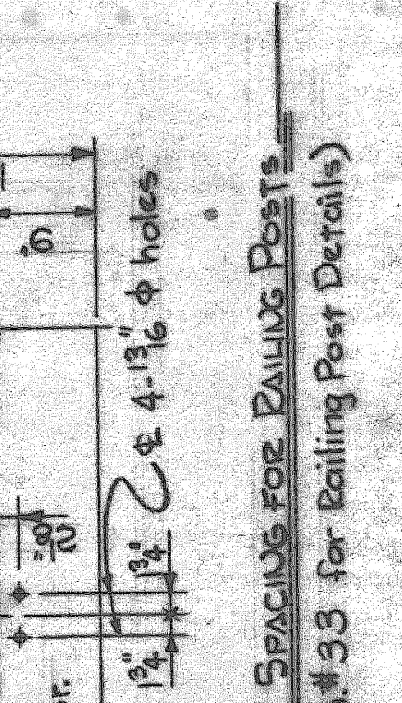 6"
℄ 4-13/16" ϕ holes
1 3/4" 1 3/4"
r.
SPACING FOR RAILING POSTS
.#33 for Railing Post Details)